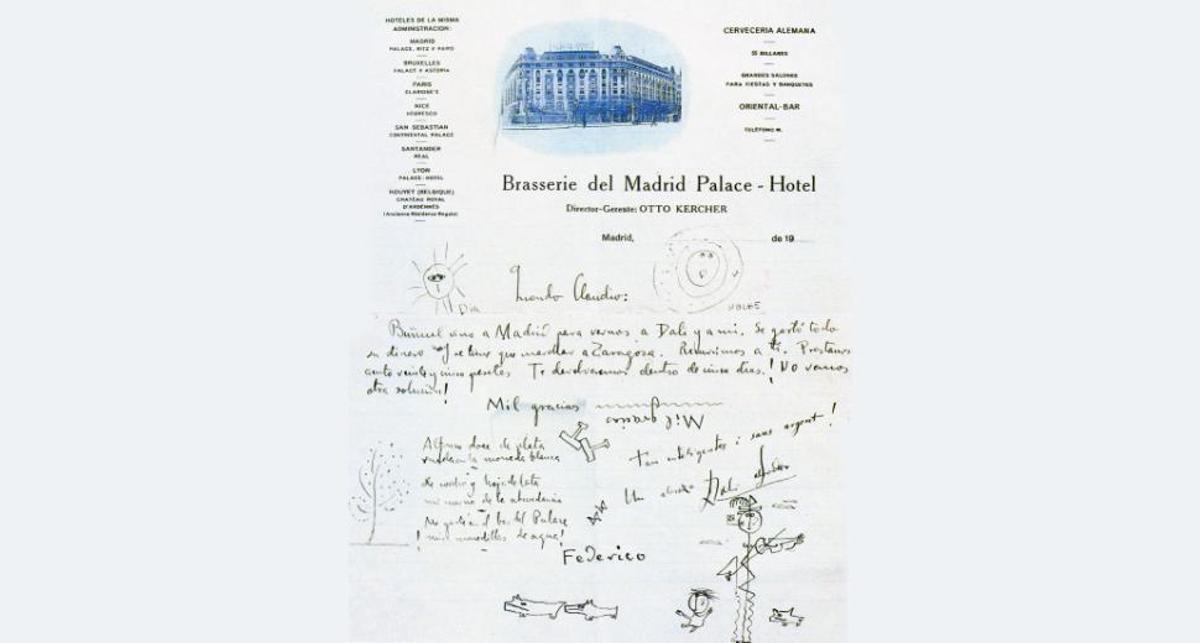 HOTELES DE LA MISMA
ADMINISTRACION:
MADRID
PALACE, RITZ Y PARO
BRUXELLES
PALACE Y ASTORIA
PARIS
CLARIDGE'S
NICE
NEGRESCO
SAN SEBASTIAN
CONTINENTAL PALACE
SANTANDER
REAL
LYON
PALACE-HOTEL
HOUYET (BELGIQUE)
CHATEAU ROYAL
D'ARDENNES
(Ancienne Résidence Royale)
CERVECERIA ALEMANA
55 BILLARES
GRANDES SALONES
PARA FIESTAS Y BANQUETES
ORIENTAL-BAR
TELÉFONO M.
Brasserie del Madrid Palace - Hotel
Director-Gerente: OTTO KERCHER
Madrid, de 19
Dia
NOCHE
Querido Claudio:
Buñuel vino a Madrid para vernos a Dalí y a mi. Se gastó todo
su dinero y se tiene que marchar a Zaragoza. Recurrimos a ti. Prestanos
ciento veinte y cinco pesetas Te devolveremos dentro de cinco dias. ! No vemos
otra solución!
Mil gracias
Mil gracias
Tan inteligentes i sans argent!
Un abrazo Dalí
de plata
la moneda blanca
De y hoja de lata
mi mano de la abundancia
el bar del Palace
! mil de agua!
Federico